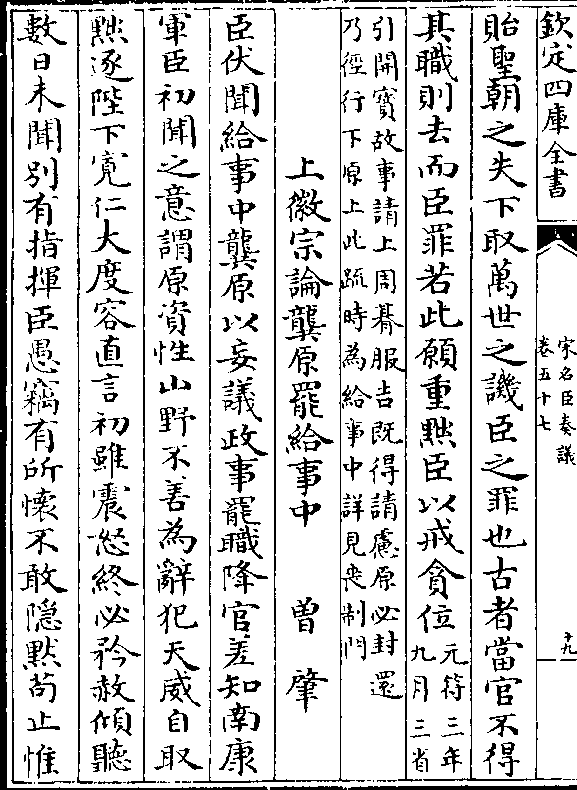 欽定四庫全書
宋名臣奏議
卷五十七
十九
貽聖朝之失下取萬世之譏臣之罪也古者當官不得
其職則去而臣罪若此願重黜臣以戒貪位元符三年
九月三省
引開寳故事請上周朞服吉既得請慮原必封還
乃徑行下原上此疏時為給事中詳見喪制門
上徽宗論龔原罷給事中 曽肇
臣伏聞給事中龔原以妄議政事罷職降官差知南康
軍臣初聞之意謂原資性山野不善為辭犯天威自取
黜逐陛下寛仁大度容直言初雖震怒終必矜赦傾聽
數日未聞别有指揮臣愚竊有所懷不敢隐黙茍止惟